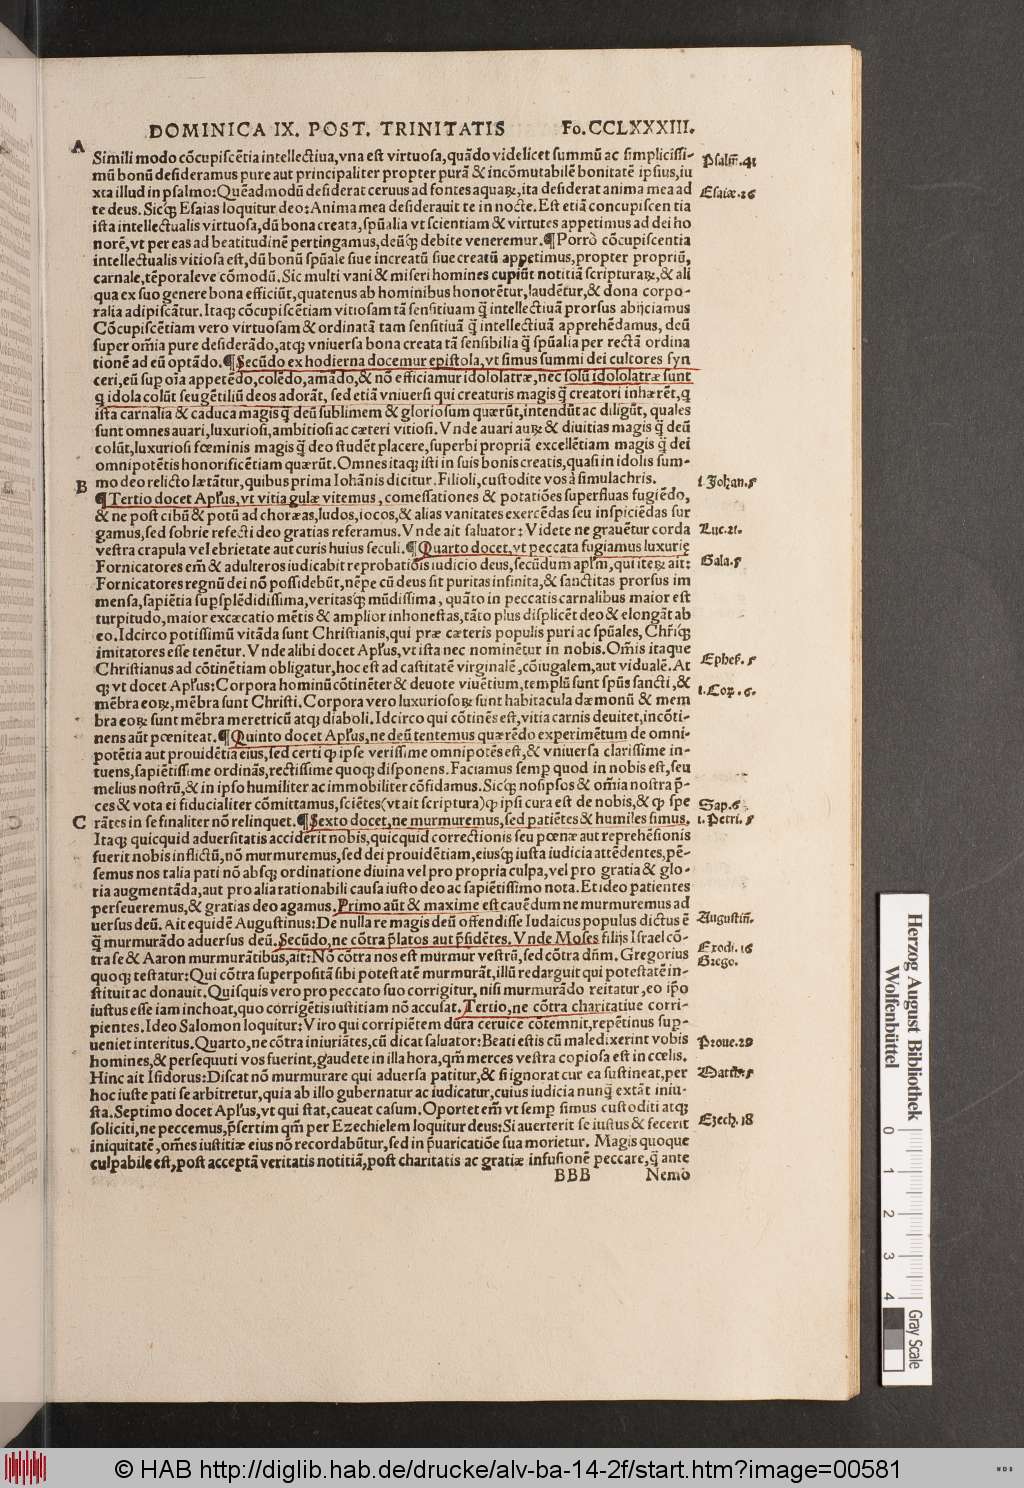 DOMINICA IX. POST. TRINITATIS Fo. CCLXXXIII.
A
Simili modo cõcupiscẽtia intellectiua, vna est virtuosa, quãdo videlicet summũ ac simplicissi-
mũ bonũ desideramus pure aut principaliter propter purã & incõmutabilẽ bonitatẽ ipsius, iu
xta illud in psalmo: Quẽadmodũ desiderat ceruus ad fontes aquaꝝ, ita desiderat anima mea ad
te deus. Sicꝙ Esaias loquitur deo: Anima mea desiderauit te in nocte. Est etiã concupiscentia
ista intellectualis virtuosa, dũ bona creata, spũalia vt scientiam & virtutes appetimus ad dei ho
norẽ, vt per eas ad beatitudinẽ pertingamus, deũꝙ debite veneremur. ¶ Porrò cõcupiscentia
intellectualis vitiosa est, dũ bonũ spũale siue increatũ siue creatũ appetimus, propter propriũ,
carnale, tẽporaleve cõmodũ. Sic multi vani & miseri homines cupiũt notitiã scripturaꝝ, & ali
qua ex suo genere bona efficiũt, quatenus ab hominibus honorẽtur, laudẽtur, & dona corpo-
ralia adipiscãtur. Itaqꝫ cõcupiscẽtiam vitiosam tã sensitiuam q̃ intellectiuã prorsus abijciamus
Cõcupiscẽtiam vero virtuosam & ordinatã tam sensitiuã q̃ intellectiuã apprehẽdamus, deũ
super om̃ia pure desiderãdo, atqꝫ vniuersa bona creata tã sensibilia q̃ spũalia per rectã ordina
tionẽ ad eũ optãdo. ¶ Secũdo ex hodierna docemur epistola, vt simus summi dei cultores syn
ceri, eũ sup oĩa appetẽdo, colẽdo, amãdo, & nõ efficiamur idololatræ, nec solũ idololatræ sunt
q̃ idola colũt seu gẽtiliũ deos adorãt, sed etiã vniuersi qui creaturis magis q̃ creatori inhærẽt, q̃
ista carnalia & caduca magis q̃ deũ sublimem & gloriosum quærũt, intendũt ac diligũt, quales
sunt omnes auari, luxuriosi, ambitiosi ac cæteri vitiosi. Vnde auari auꝝ & diuitias magis q̃ deũ
colũt, luxuriosi fœminis magis q̃ deo studẽt placere, superbi propriã excellẽtiam magis q̃ dei
omnipotẽtis honorificẽtiam quærũt. Omnes itaqꝫ isti in suis bonis creatis, quasi in idolis sum-
mo deo relicto lætãtur, quibus prima Iohãnis dicitur. Filioli, custodite vos à simulachris.
B
¶ Tertio docet Apl̃us, vt vitia gulæ vitemus, comessationes & potatiões superfluas fugiẽdo,
& ne post cibũ & potũ ad choræas, ludos, iocos, & alias vanitates exercẽdas seu inspiciẽdas sur
gamus, sed sobrie refecti deo gratias referamus. Vnde ait saluator: Videte ne grauẽtur corda
vestra crapula vel ebrietate aut curis huius seculi. ¶ Quarto docet, vt peccata fugiamus luxurię
Fornicatores em̃ & adulteros iudicabit reprobatiõis iudicio deus, secũdum apl̃m, qui iteꝝ ait:
Fornicatores regnũ dei nõ possidebũt, nẽpe cũ deus sit puritas infinita, & sanctitas prorsus im
mensa, sapiẽtia supsplẽdidissima, veritasꝙ mũdissima, quãto in peccatis carnalibus maior est
turpitudo, maior excæcatio mẽtis & amplior inhonestas, tãto plus displicẽt deo & elongãt ab
eo. Idcirco potissimũ vitãda sunt Christianis, qui præ cæteris populis puri ac spũales, Chr̃iꝙ
imitatores esse tenẽtur. Vnde alibi docet Apl̃us, vt ista nec nominẽtur in nobis. Om̃is itaque
Christianus ad cõtinẽtiam obligatur, hoc est ad castitatẽ virginalẽ, cõiugalem, aut vidualẽ. At
qꝫ vt docet Apl̃us: Corpora hominũ cõtinẽter & deuote viuẽtium, templũ sunt spũs sancti, &
mẽbra eoꝝ, mẽbra sunt Christi. Corpora vero luxuriosoꝝ sunt habitacula dæmonũ & mem
bra eoꝝ sunt mẽbra meretricũ atqꝫ diaboli. Idcirco qui cõtinẽs est, vitia carnis deuitet, incõti-
nens aut pœniteat. ¶ Quinto docet Apl̃us, ne deũ tentemus quærẽdo experimẽtum de omni-
potẽtia aut prouidẽtia eius, sed certi ꝙ ipse verissime omnipotẽs est, & vniuersa clarissime in-
tuens, sapiẽtissime ordinãs, rectissime quoqꝫ disponens. Faciamus semp quod in nobis est, seu
melius nostrũ, & in ipso humiliter ac immobiliter cõfidamus. Sicꝙ nosipsos & om̃ia nostra p̃-
ces & vota ei fiducialiter cõmittamus, sciẽtes (vt ait scriptura) ꝙ ipsi cura est de nobis, & ꝙ spe
C
rãtes in se finaliter nõ relinquet. ¶ Sexto docet, ne murmuremus, sed patiẽtes & humiles simus.
Itaqꝫ quicquid aduersitatis acciderit nobis, quicquid correctionis seu pœnæ aut reprehẽsionis
fuerit nobis inflictũ, nõ murmuremus, sed dei prouidẽtiam, eiusꝙ iusta iudicia attẽdentes, pẽ-
semus nos talia pati nõ absqꝫ ordinatione diuina vel pro propria culpa, vel pro gratia & glo-
ria augmentãda, aut pro alia rationabili causa iusto deo ac sapiẽtissimo nota. Et ideo patientes
perseueremus, & gratias deo agamus. Primo aũt & maxime est cauẽdum ne murmuremus ad
uersus deũ. Ait equidẽ Augustinus: De nulla re magis deũ offendisse Iudaicus populus dictus ẽ
q̃ murmurãdo aduersus deũ. Secũdo, ne cõtra p̃latos aut p̃sidẽtes. Vnde Moses filijs Israel cõ-
tra se & Aaron murmurãtibus, ait: Nõ cõtra nos est murmur vestrũ, sed cõtra dñm. Gregorius
quoqꝫ testatur: Qui cõtra superpositã sibi potestatẽ murmurãt, illũ redarguit qui potestatẽ in-
stituit ac donauit. Quisquis vero pro peccato suo corrigitur, nisi murmurãdo reitatur, eo ip̃o
iustus esse iam inchoat, quo corrigẽtis iustitiam nõ accusat. Tertio, ne cõtra charitatiue corri-
pientes. Ideo Salomon loquitur: Viro qui corripiẽtem dura ceruice cõtemnit, repẽtinus sup-
ueniet interitus. Quarto, ne cõtra iniuriãtes, cũ dicat saluator: Beati estis cũ maledixerint vobis
homines, & persequuti vos fuerint, gaudete in illa hora, qm̃ merces vestra copiosa est in cœlis.
Hinc ait Isidorus: Discat nõ murmurare qui aduersa patitur, & si ignorat cur ea sustineat, per
hoc iuste pati se arbitretur, quia ab illo gubernatur ac iudicatur, cuius iudicia nunq̃ extãt iniu-
sta. Septimo docet Apl̃us, vt qui stat, caueat casum. Oportet em̃ vt semp simus custoditi atqꝫ
soliciti, ne peccemus, p̃sertim qm̃ per Ezechielem loquitur deus: Si auerterit se iustus & fecerit
iniquitatẽ, om̃es iustitiæ eius nõ recordabũtur, sed in p̃uaricatiõe sua morietur. Magis quoque
culpabile est, post acceptã veritatis notitiã, post charitatis ac gratiæ infusionẽ peccare, q̃ ante
BBB Nemo
Psalm̃. 41
Esaiæ. 26
1. Johan. 5
Luc. 21.
Gala. 5
Ephes. 5
1. Coꝝ. 6.
Sap. 6
1. Petri. 5
Augustiñ.
Exodi. 16
Grego.
Proue. 29
Matth. 5
Ezech. 18
Herzog August Bibliothek
Wolfenbüttel
0 1 2 3 4
Gray Scale
© HAB http://diglib.hab.de/drucke/alv-ba-14-2f/start.htm?image=00581